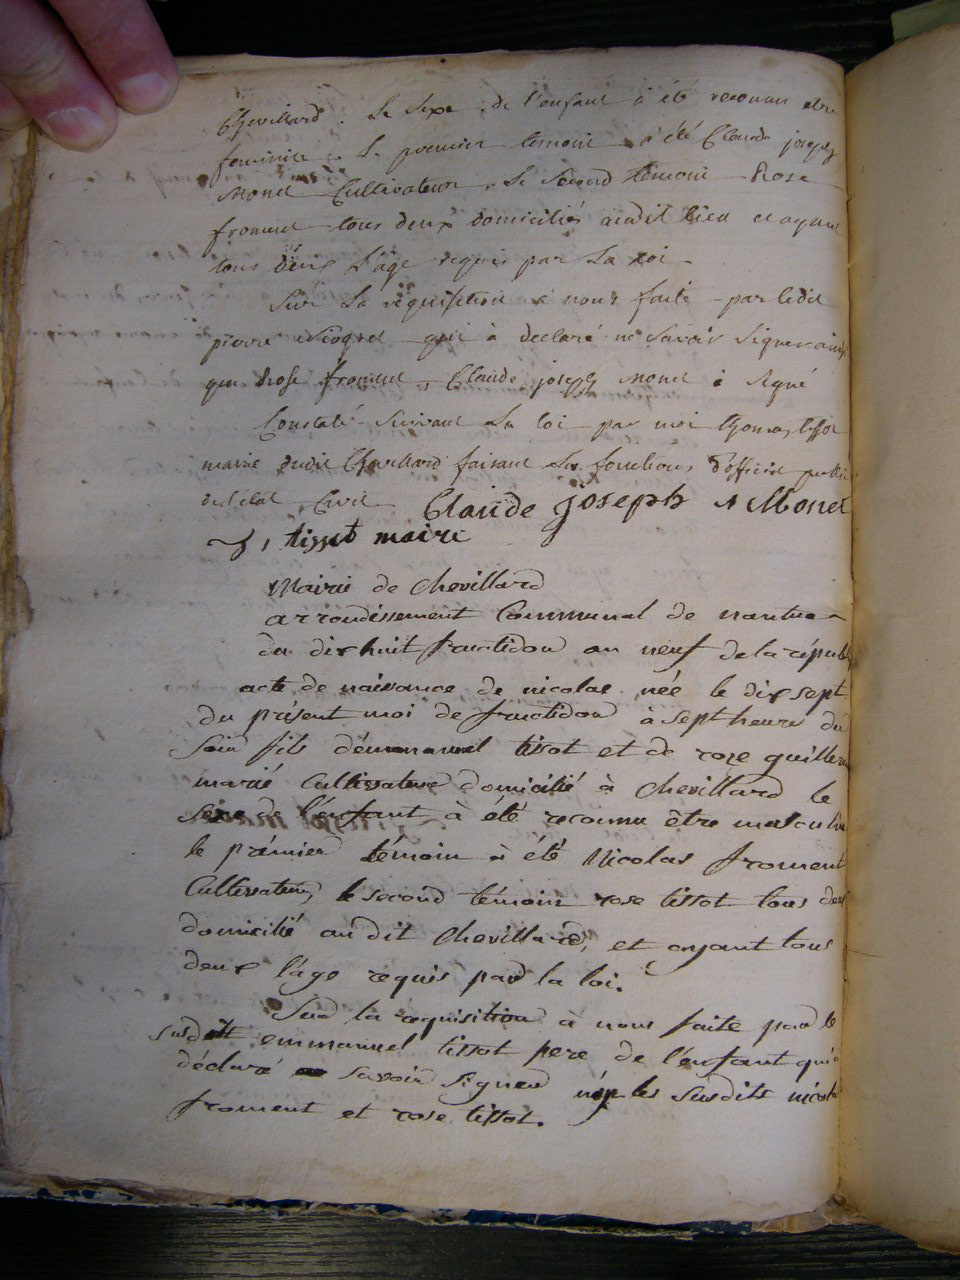 Chevillard. Le Sexe de l'enfant à été reconnu etre
feminin. Le premier temoin à été Claude joseph
Monet Cultivateur, le Second temoin Rose
froment tous deux domiciliés audit lieu et ayant
tous deux l'âge requis par la Loi
Sur la réquisition à nous faite par ledit
pierre qui à declaré ne Savoir Signer ainsi
que Rose froment, Claude joseph Monet à signé
Constaté Suivant la loi par moi thomas tissot
maire dudit Chevillard faisant les fonctions d'officier public
de l'état Civil Claude joseph Monet
tissot maire
Mairie de chevillard
arrondissement Communal de nantua
du dix huit fructidor an neuf de la républ
acte de naissance de nicolas née le dix sept
du présent moi de fructidor à sept heures du
soir fils démmanuel tissot et de rose guillerm
marié Cultivateur domicilié à chevillard le
sexe de l'enfant à été reconnu être masculin
le prémier témoin à été Nicolas froment
Cultivateur, le second témoin rose tissot tous deux
domicilié au dit chevillard, et ayant tous
deux l'age requis par la loi.
Sur la requisition à nous faite par le
susdit emmanuel tissot pere de l'enfant qui à
déclaré savoir signer les susdits nicolas
froment et rose tissot.